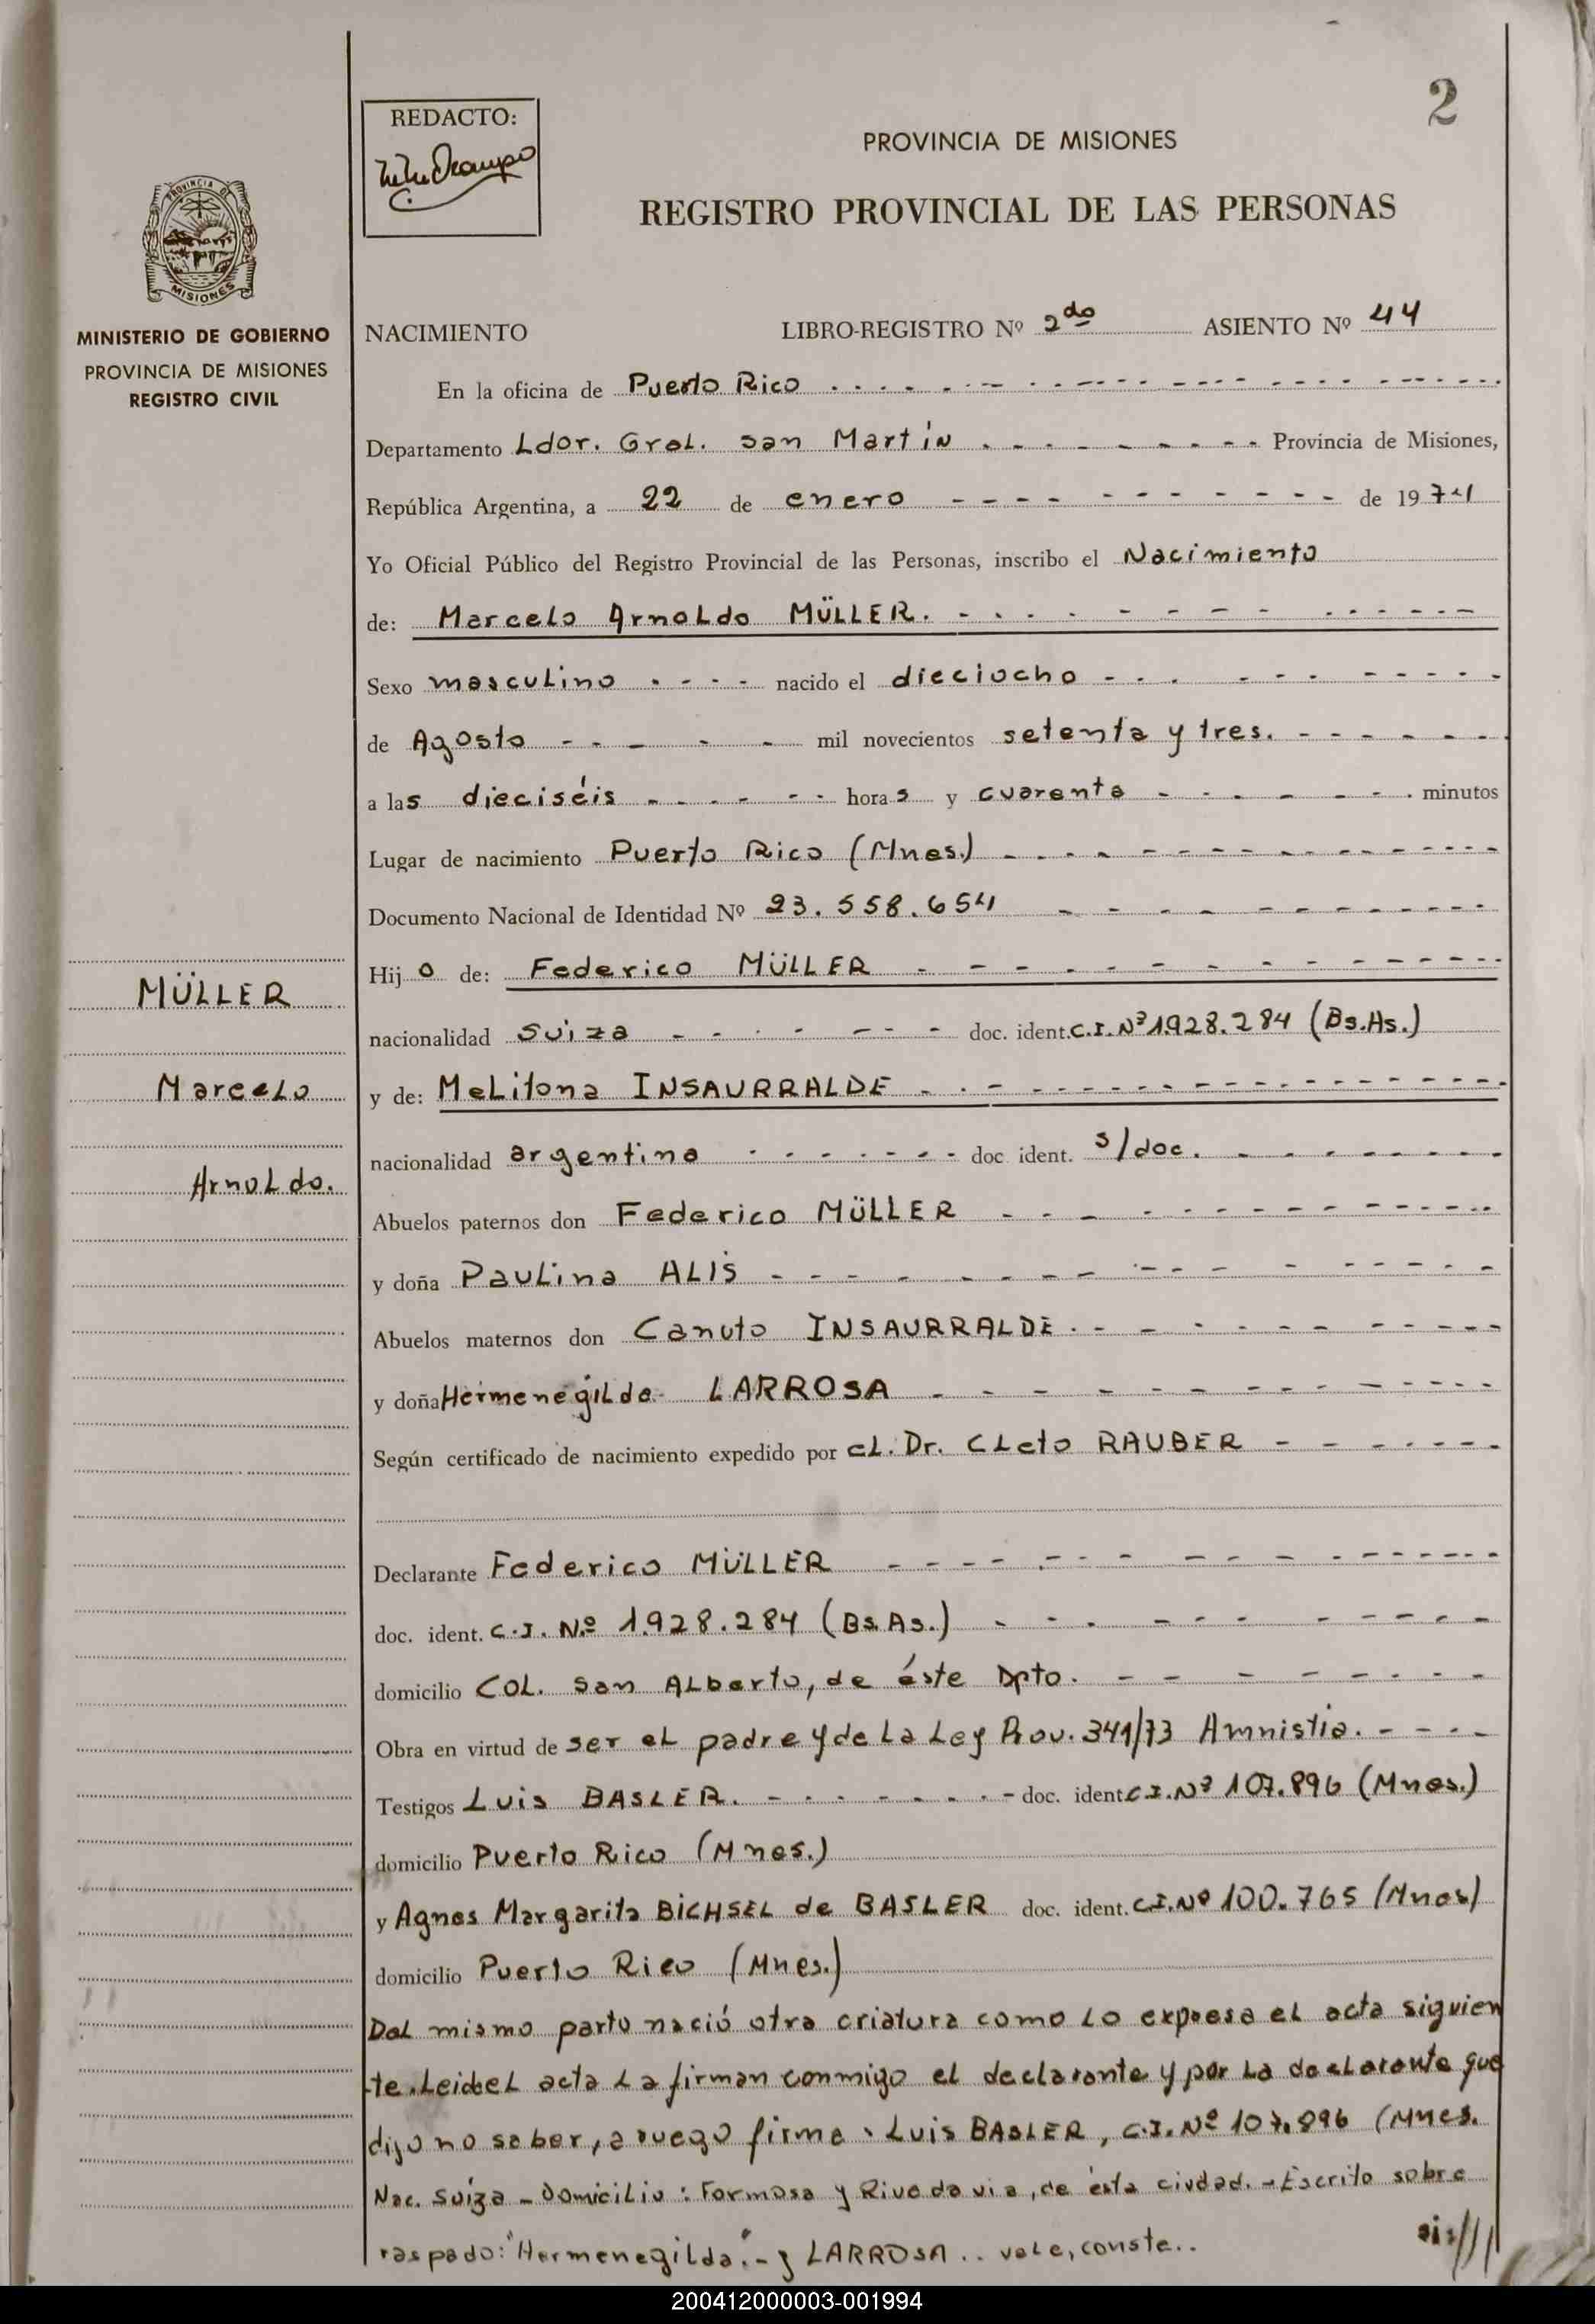 2
REDACTO:
PROVINCIA DE MISIONES
REGISTRO PROVINCIAL DE LAS PERSONAS
PROVINCIA DE
MISIONES
MINISTERIO DE GOBIERNO
PROVINCIA DE MISIONES
REGISTRO CIVIL
NACIMIENTO LIBRO-REGISTRO Nº 2do ASIENTO Nº 44
En la oficina de Puerto Rico
Departamento Ldor. Gral. san Martín Provincia de Misiones,
República Argentina, a 22 de enero de 1974
Yo Oficial Público del Registro Provincial de las Personas, inscribo el Nacimiento
de: Marcelo Arnoldo MÜLLER.
Sexo masculino nacido el dieciocho
de Agosto mil novecientos setenta y tres.
a las dieciséis horas y cuarenta minutos
Lugar de nacimiento Puerto Rico (Mnes.)
Documento Nacional de Identidad Nº 23.558.654
Hijo de: Federico MÜLLER
nacionalidad Suiza doc. ident. C.I. Nº 1.928.284 (Bs.As.)
y de: Melitona INSAURRALDE
nacionalidad argentina doc. ident. s/doc.
Abuelos paternos don Federico MÜLLER
y doña Paulina ALIS
Abuelos maternos don Canuto INSAURRALDE
y doña Hermenegilda LARROSA
Según certificado de nacimiento expedido por el Dr. Cleto RAUBER
Declarante Federico MÜLLER
doc. ident. C.I. Nº 1.928.284 (Bs.As.)
domicilio COL. san ALberto, de éste Dpto.
Obra en virtud de ser el padre y de La Ley Prov. 341/73 Amnistia.
Testigos Luis BASLER. doc. ident C.I. Nº 107.896 (Mnes.)
domicilio Puerto Rico (Mnes.)
y Agnes Margarita BICHSEL de BASLER doc. ident. C.I. Nº 100.765 (Mnes)
domicilio Puerto Rico (Mnes.)
Del mismo parto nació otra criatura como lo expresa el acta siguien
te. Leida el acta la firman conmigo el declarante y por la declarante que
dijo no saber, a ruego firma Luis BASLER, C.I. Nº 107.896 (Mnes.
Nac. Suiza - Domicilio: Formosa y Rivadavia, de ésta ciudad. - Escrito sobre
raspado: "Hermenegilda" - y LARROSA .. vale, conste..
MÜLLER
Marcelo
Arnoldo.
200412000003-001994